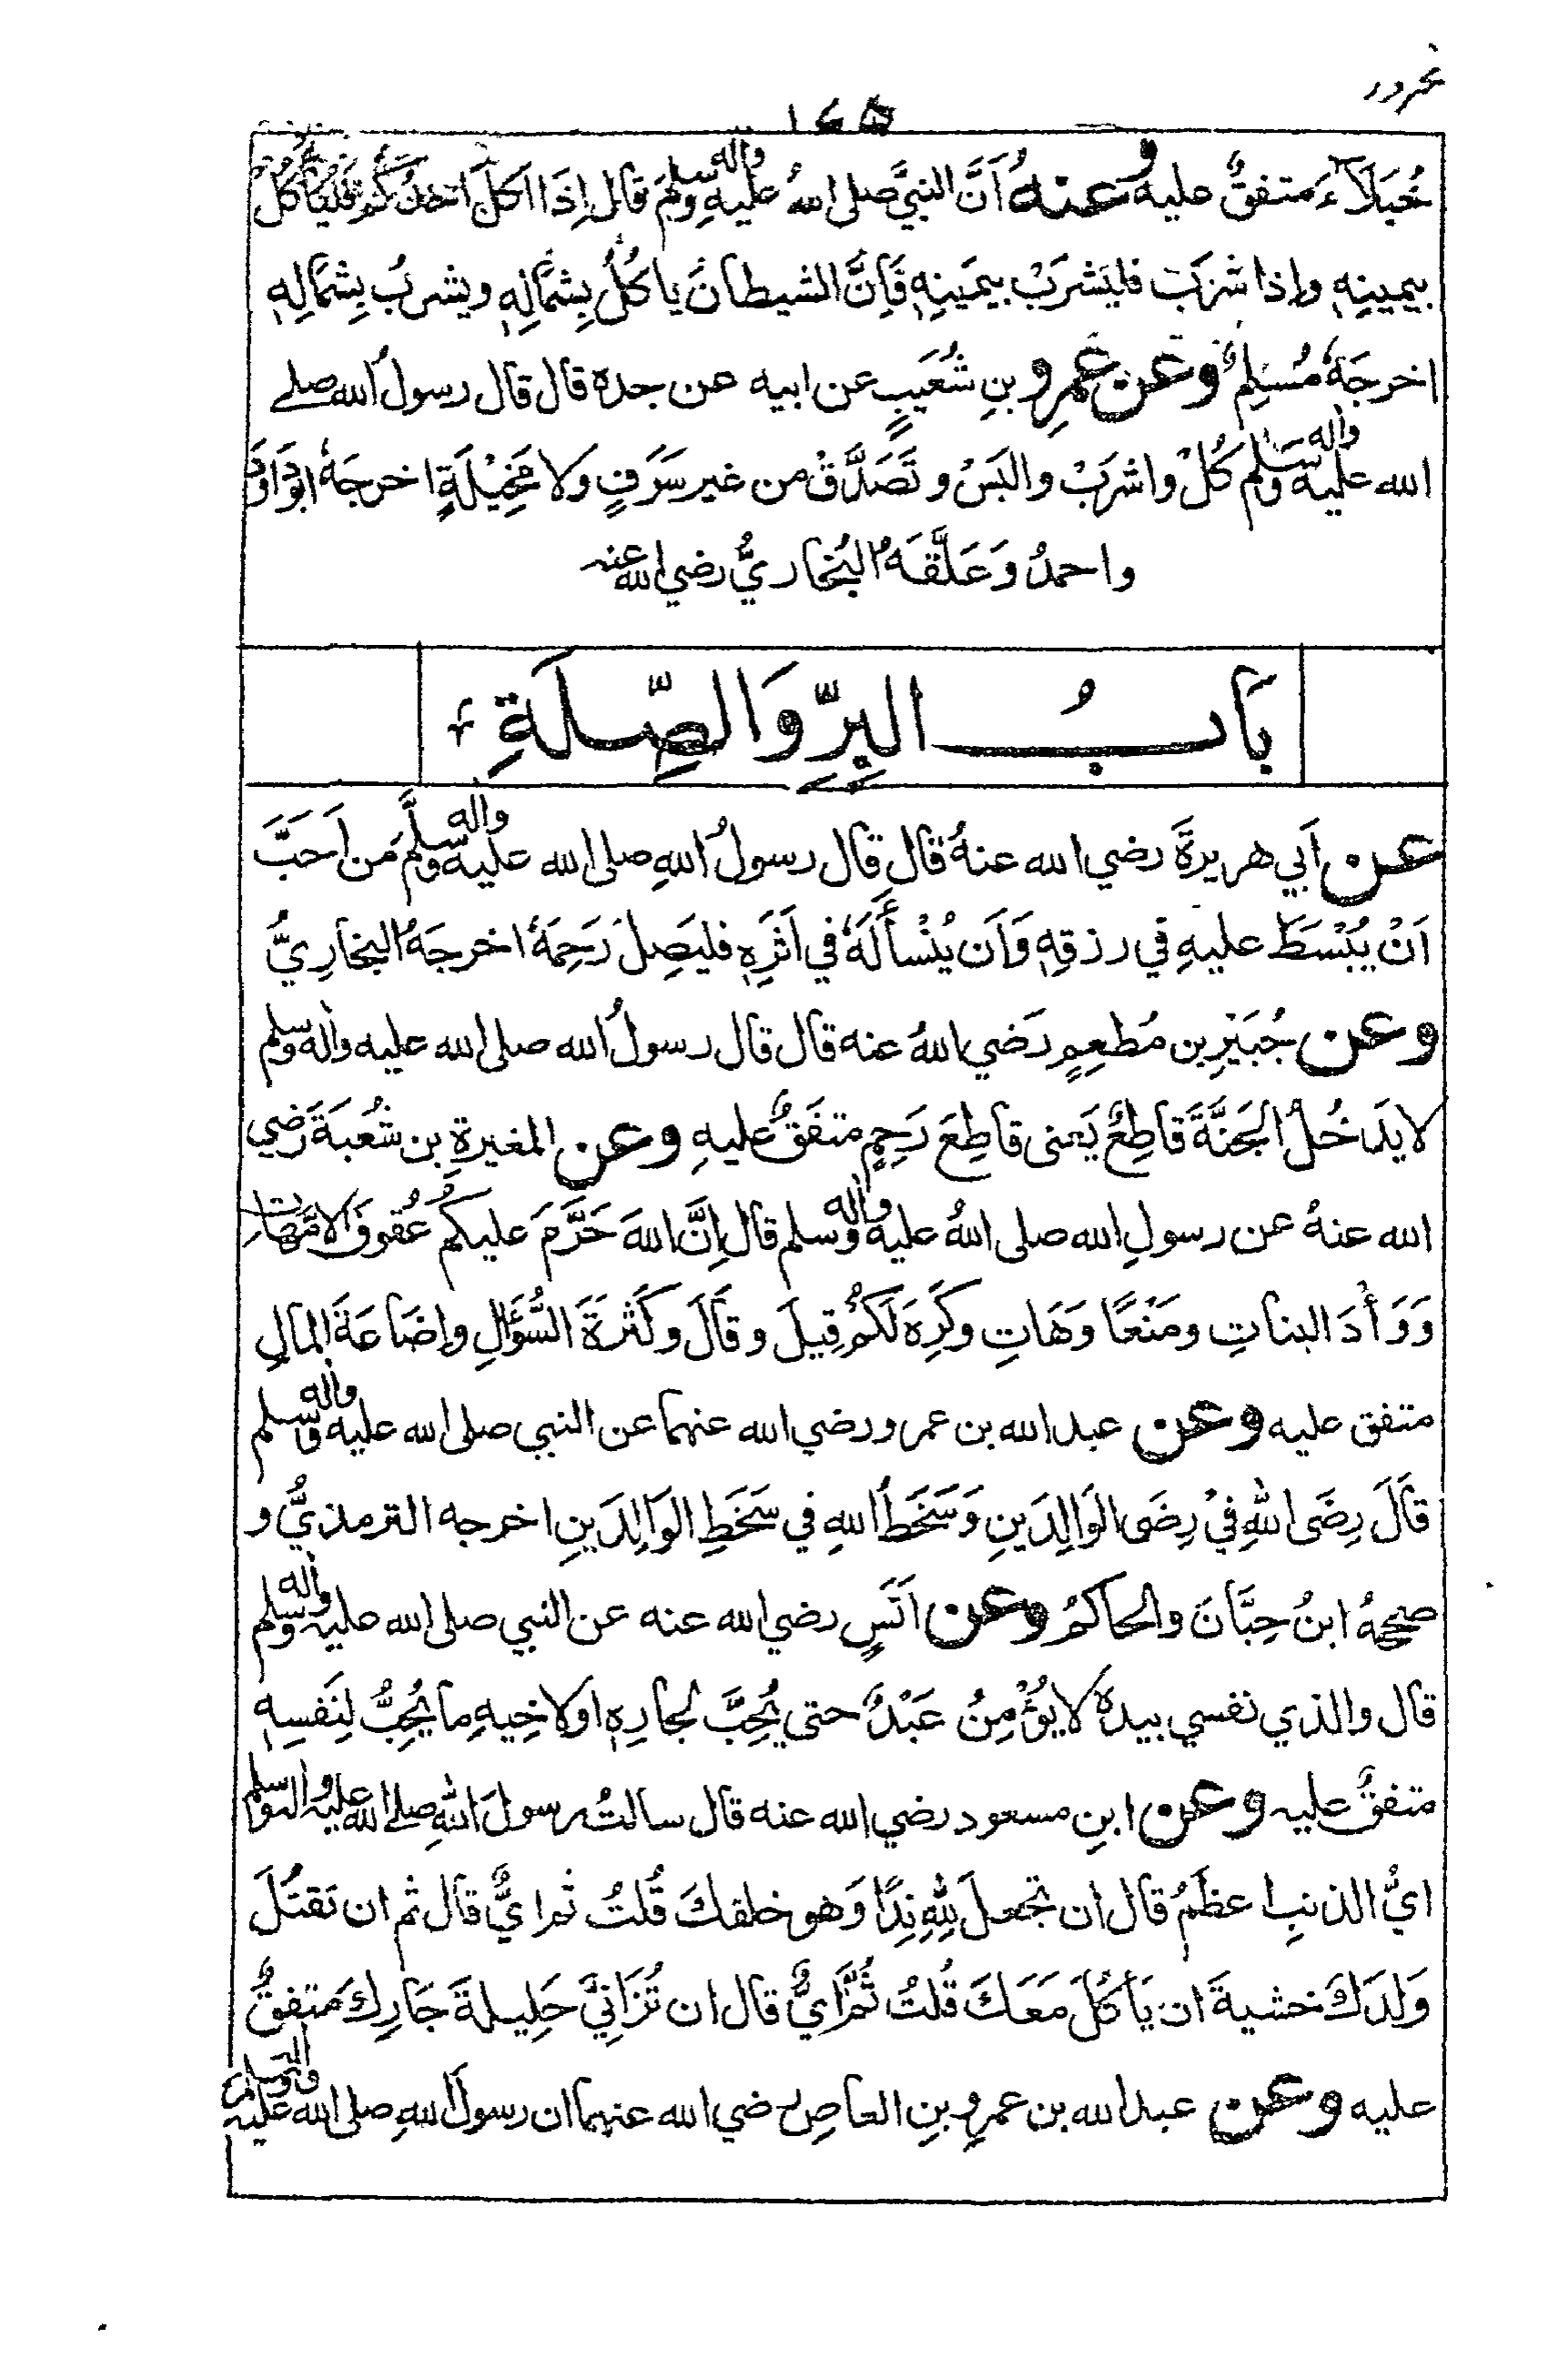 خُيَلَآءَ متفقٌ عليه وعنهُ اَنَّ النبيَّ صلى اللهُ عليهِ واٰله وسلم قال اِذَا اَكلَ احدُكُم فَليَأكُلْ
بيمينِهٖ واِذا شَرِبَ فليَشرَبْ بيَمينِهٖ فَاِنَّ الشيطانَ ياكُلُ بِشِمَالِهٖ ويشربُ بِشِمَالِهٖ
اخرجَهٗ مُسْلِمٌ وعن عَمرِو بنِ شُعَيبٍ عن ابيه عن جده قال قال رسولُ الله صلے
الله عليه واٰله وسلم كُلْ واشْرَبْ والبَسْ وتَصَدَّقْ من غير سَرَفٍ وَلا مَخِيْلَةٍ اخرجَهٗ ابوداودَ
واحمدُ وَعَلَّقَهُ البُخاريُّ رضي الله عنه
بَابُ البِرِّ وَالصِّلَةِ
عن اَبي هريرةَ رضي الله عنهُ قال قال رسولُ اللهِ صلى الله عليه واٰله وسلَّم مَن اَحَبَّ
اَنْ يُبْسَطَ عليهِ في رزقِهٖ وَاَن يُنْسأَلَهٗ في اَثَرِهٖ فليَصِلْ رَحِمَهٗ اخرجَهُ البخارِيُّ
وعن جُبَيْرِ بن مُطعِمٍ رَضي اللهُ عنه قال قال رسولُ الله صلى الله عليه واٰله وسلم
لا يدَخُلُ الجَنَّةَ قَاطِعٌ يَعنى قاطِعَ رَحِمٍ متفَقٌ عليهِ وعن المغيرةِ بن شُعبَةَ رَضي
الله عنهُ عن رسولِ الله صلى اللهُ عليه واٰله وسلم قال اِنَّ اللهَ حَرَّمَ عليكم عُقوقَ الامَّهاتِ
وَوَأْدَ البناتِ ومَنْعًا وَهَاتِ وكَرِهَ لَكُمْ قِيلَ وقَالَ وكَثرةَ السُّؤَالِ واِضَاعَةَ المالِ
متفق عليه وعن عبد الله بن عمرو رضي الله عنهما عن النبي صلى الله عليه واٰله وسلم
قَالَ رِضَى اللهِ فِيْ رِضَى الوَالِدَينِ وَسَخَطُ اللهِ في سَخَطِ الوَالِدَينِ اخرجه الترمذيُّ و
صححهُ ابنُ حِبَّانَ والحاكمُ وعن انَسٍ رضي الله عنه عن النبي صلى الله عليه واٰله وسلم
قال والذي نفسي بيده لا يُؤْمِنُ عَبْدٌ حتى يُحِبَّ لجارِهٖ اولاخِيهِ ما يُحِبُّ لِنَفسِهٖ
متفقٌ عليه وعن ابنِ مسعود رضي الله عنه قال سالتُ رسولَ اللهِ صلے الله عليه واٰله وسلم
ايُّ الذنبِ اعظَمُ قال ان تجعلَ لِلّٰهِ نِدًّا وَهو خلقكَ قُلتُ ثم ايٌّ قال ثم ان تقتُلَ
وَلدَكَ خشيةَ ان يَأكُلَ مَعَكَ قُلتُ ثُمَّ اَيٌّ قال ان تُزَانِيَ حَلِيلةَ جَارِكَ متفقٌ
عليه وعن عبد الله بن عمرِو بنِ العاصِ رضي الله عنهما ان رسولَ اللهِ صلى الله عليه واٰله وسلم